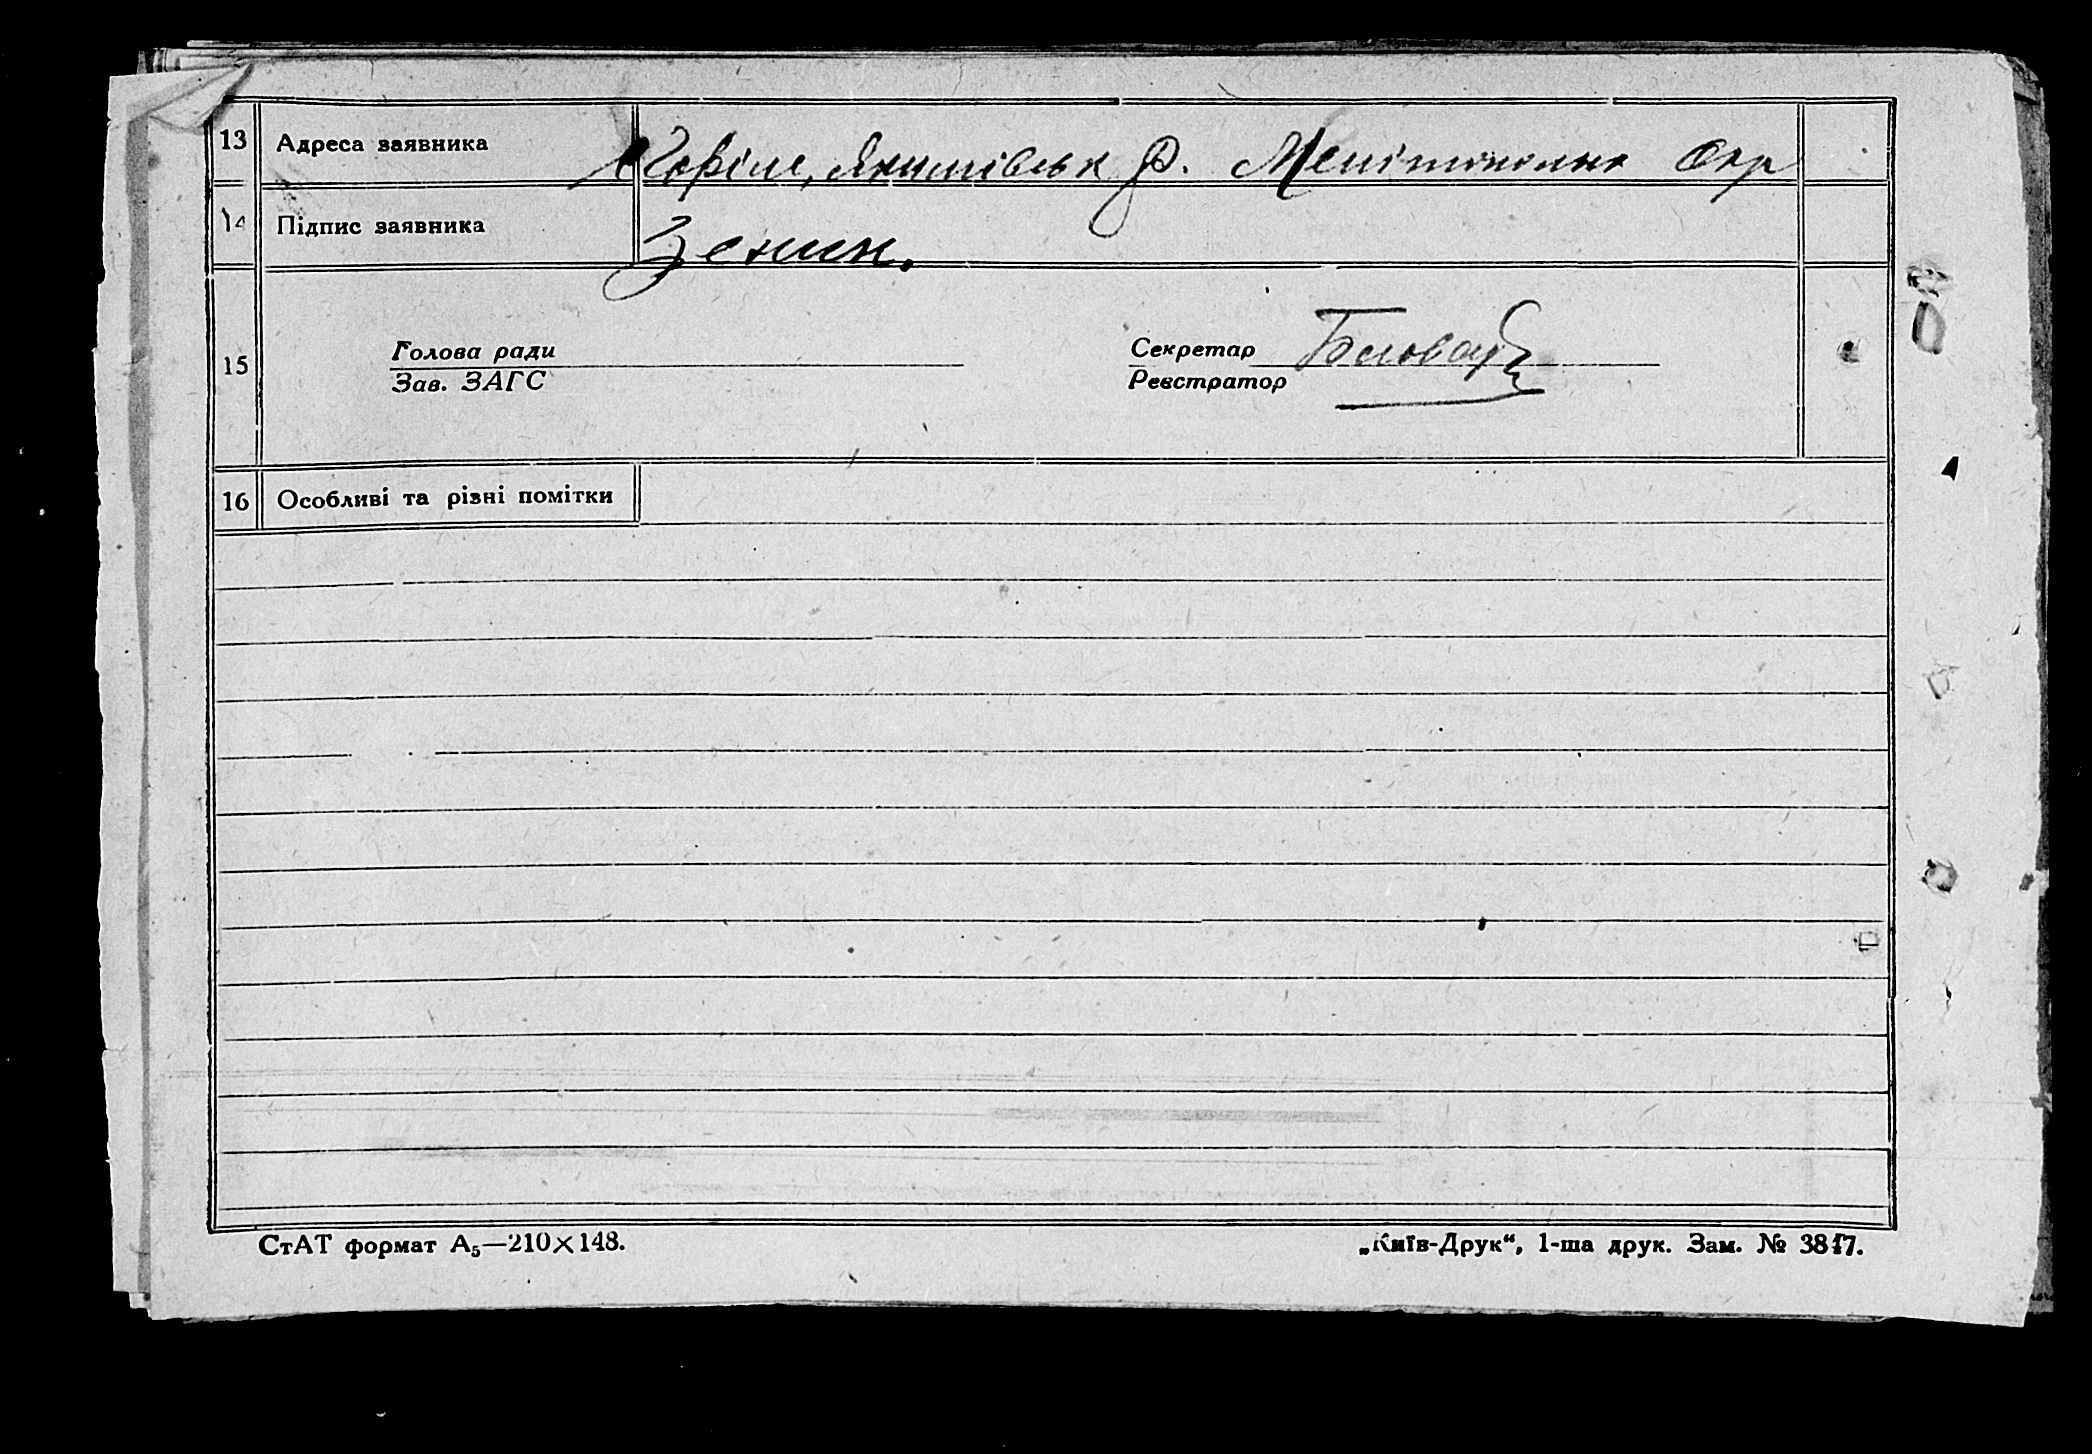 13 Адреса заявника Якимівськ р. Мелітопольк Окр
14 Підпис заявника Зенин.
15 Голова ради
Зав. ЗАГС
Секретар
Реєстратор
16 Особливі та різні помітки
СтАТ формат А₅—210×148.
„Київ-Друк“, 1-ша друк. Зам. № 3817.